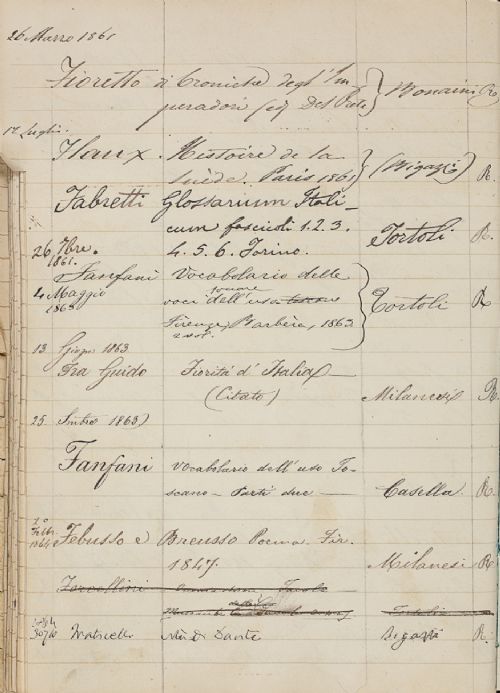 26 Marzo 1861
Fioretto di Croniche degl'Im-
peradori (ed Del Prete Bonaini R
1º Luglio.
Flaux. Histoire de la
Suède. Paris 1861 (Bigazzi) R.
Fabretti Glossarum Itali-
cum fascicoli 1. 2. 3.
4. 5. 6. Torino. Tortoli R.
26 7bre.
1861.
Fanfani Vocabolario delle
voci dell'uso Tortoli R
4 Maggio
1863
Firenze, Barbèra, 1863
2 vol.
13 Giugno 1863
Fra Guido Fiorità d'Italia
(Citato) Milanesi R.
25 1863
Fanfani Vocabolario dell'uso To-
scano - Parti due - Casella R.
20
Febb.
1864
Febusso e Breusso Poema. Fir.
1847. Milanesi R
Forcellini
Tortoli
di Dante Bigazzi R.